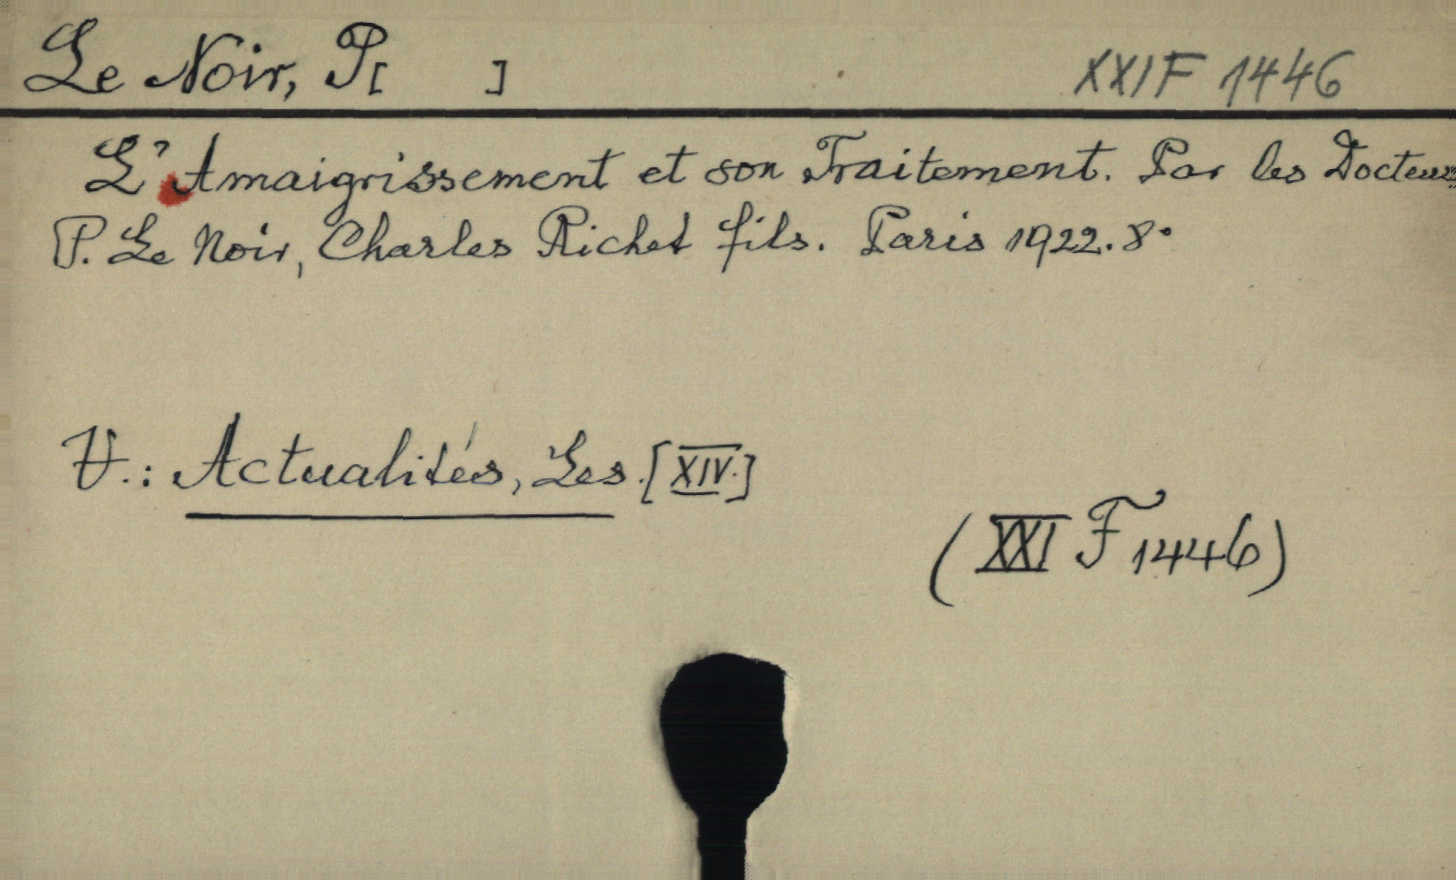 Le Noir, P[ ]
XXI F 1446
L'Amaigrissement et son Traitement. Par les Docteurs
P. Le Noir, Charles Richet fils. Paris 1922. 8°
V.: Actualités, Les. [XIV.]
(XXI F 1446)